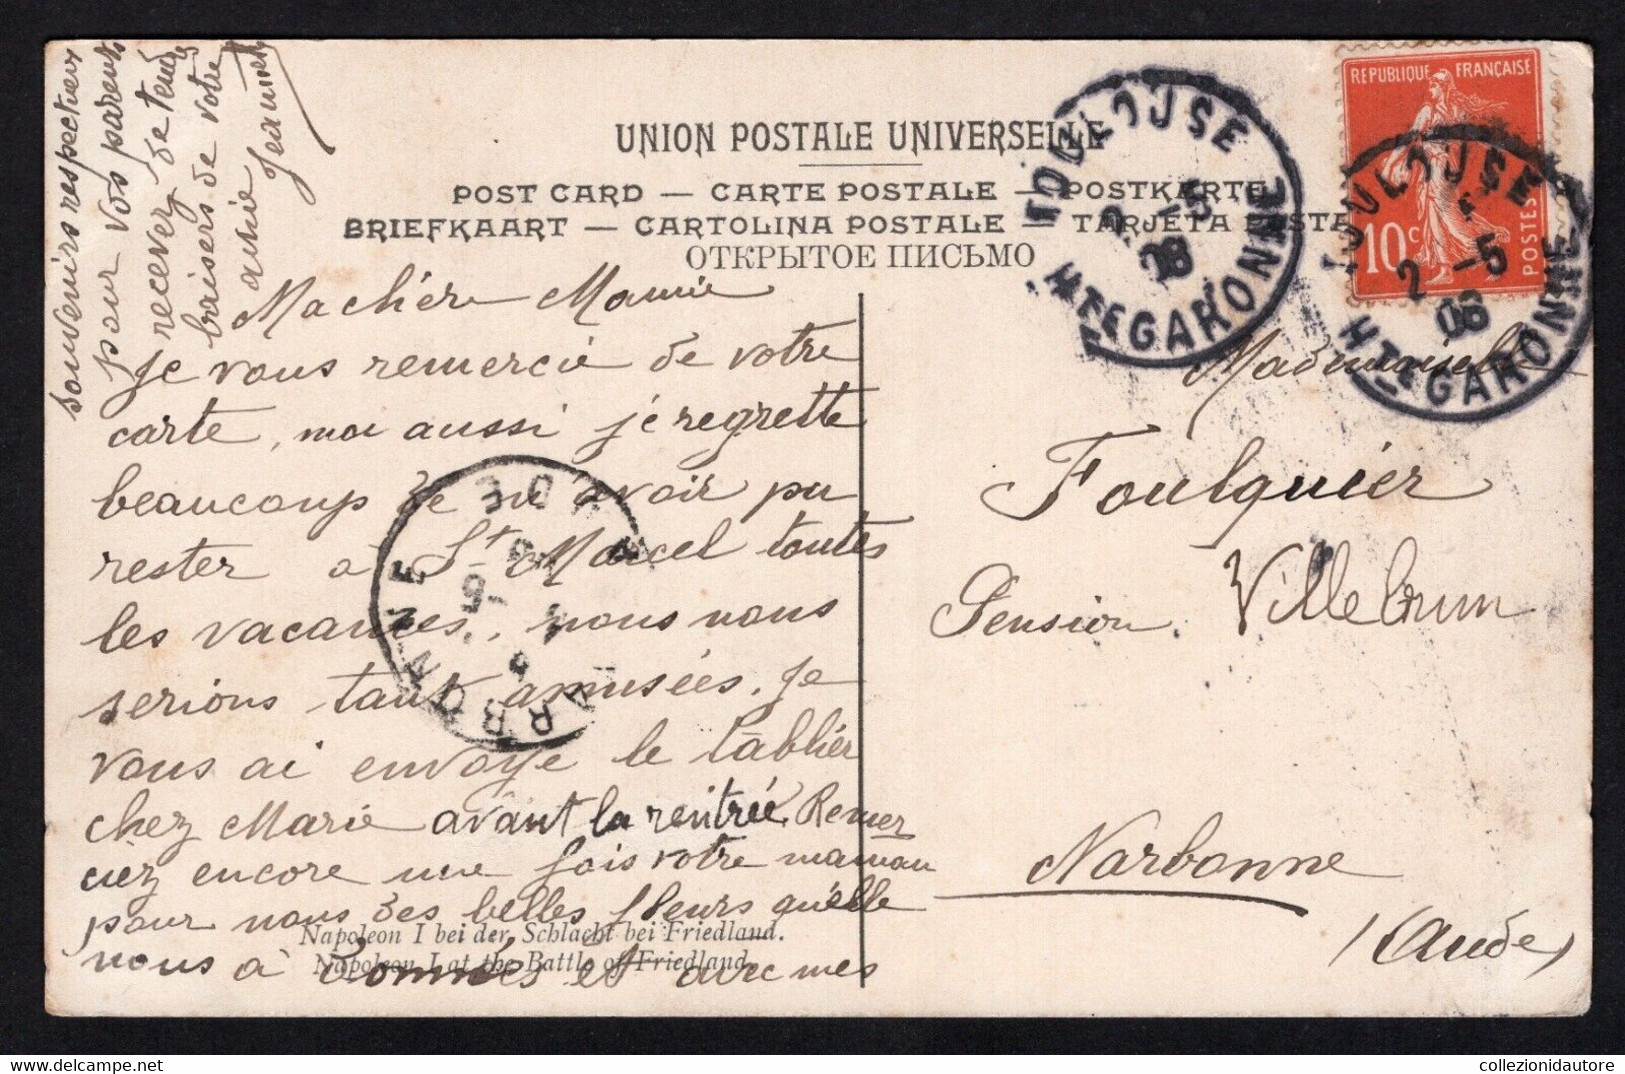 UNION POSTALE UNIVERSELLE
POST CARD — CARTE POSTALE — POSTKARTE
BRIEFKAART — CARTOLINA POSTALE — TARJETA POSTA
ОТКРЫТОЕ ПИСЬМО
REPUBLIQUE FRANÇAISE
10c
POSTES
TOULOUSE
2 -5
08
HTE GARONNE
TOULOUSE
2 -5
08
HTE GARONNE
Ma chère Mamie
Je vous remercie de votre
carte, moi aussi je regrette
beaucoup de ne avoir pu
rester à St Marcel toutes
les vacances, nous nous
serions tant amusées. Je
vous ai envoyé le tablier
chez Marie avant la rentrée. Remer
ciez encore une fois votre maman
pour nous des belles fleurs qu'elle
nous à données et avec mes
souvenirs respectueux
pour vos parents
recevez de tendres
baisers de votre
amie
Jeanne
NARBONNE
AUDE
Napoleon I bei der Schlacht bei Friedland.
Napoleon I at the Battle of Friedland.
Mademoiselle
Foulquier
Pension Villebrun
Narbonne
(Aude)
collezionidautore